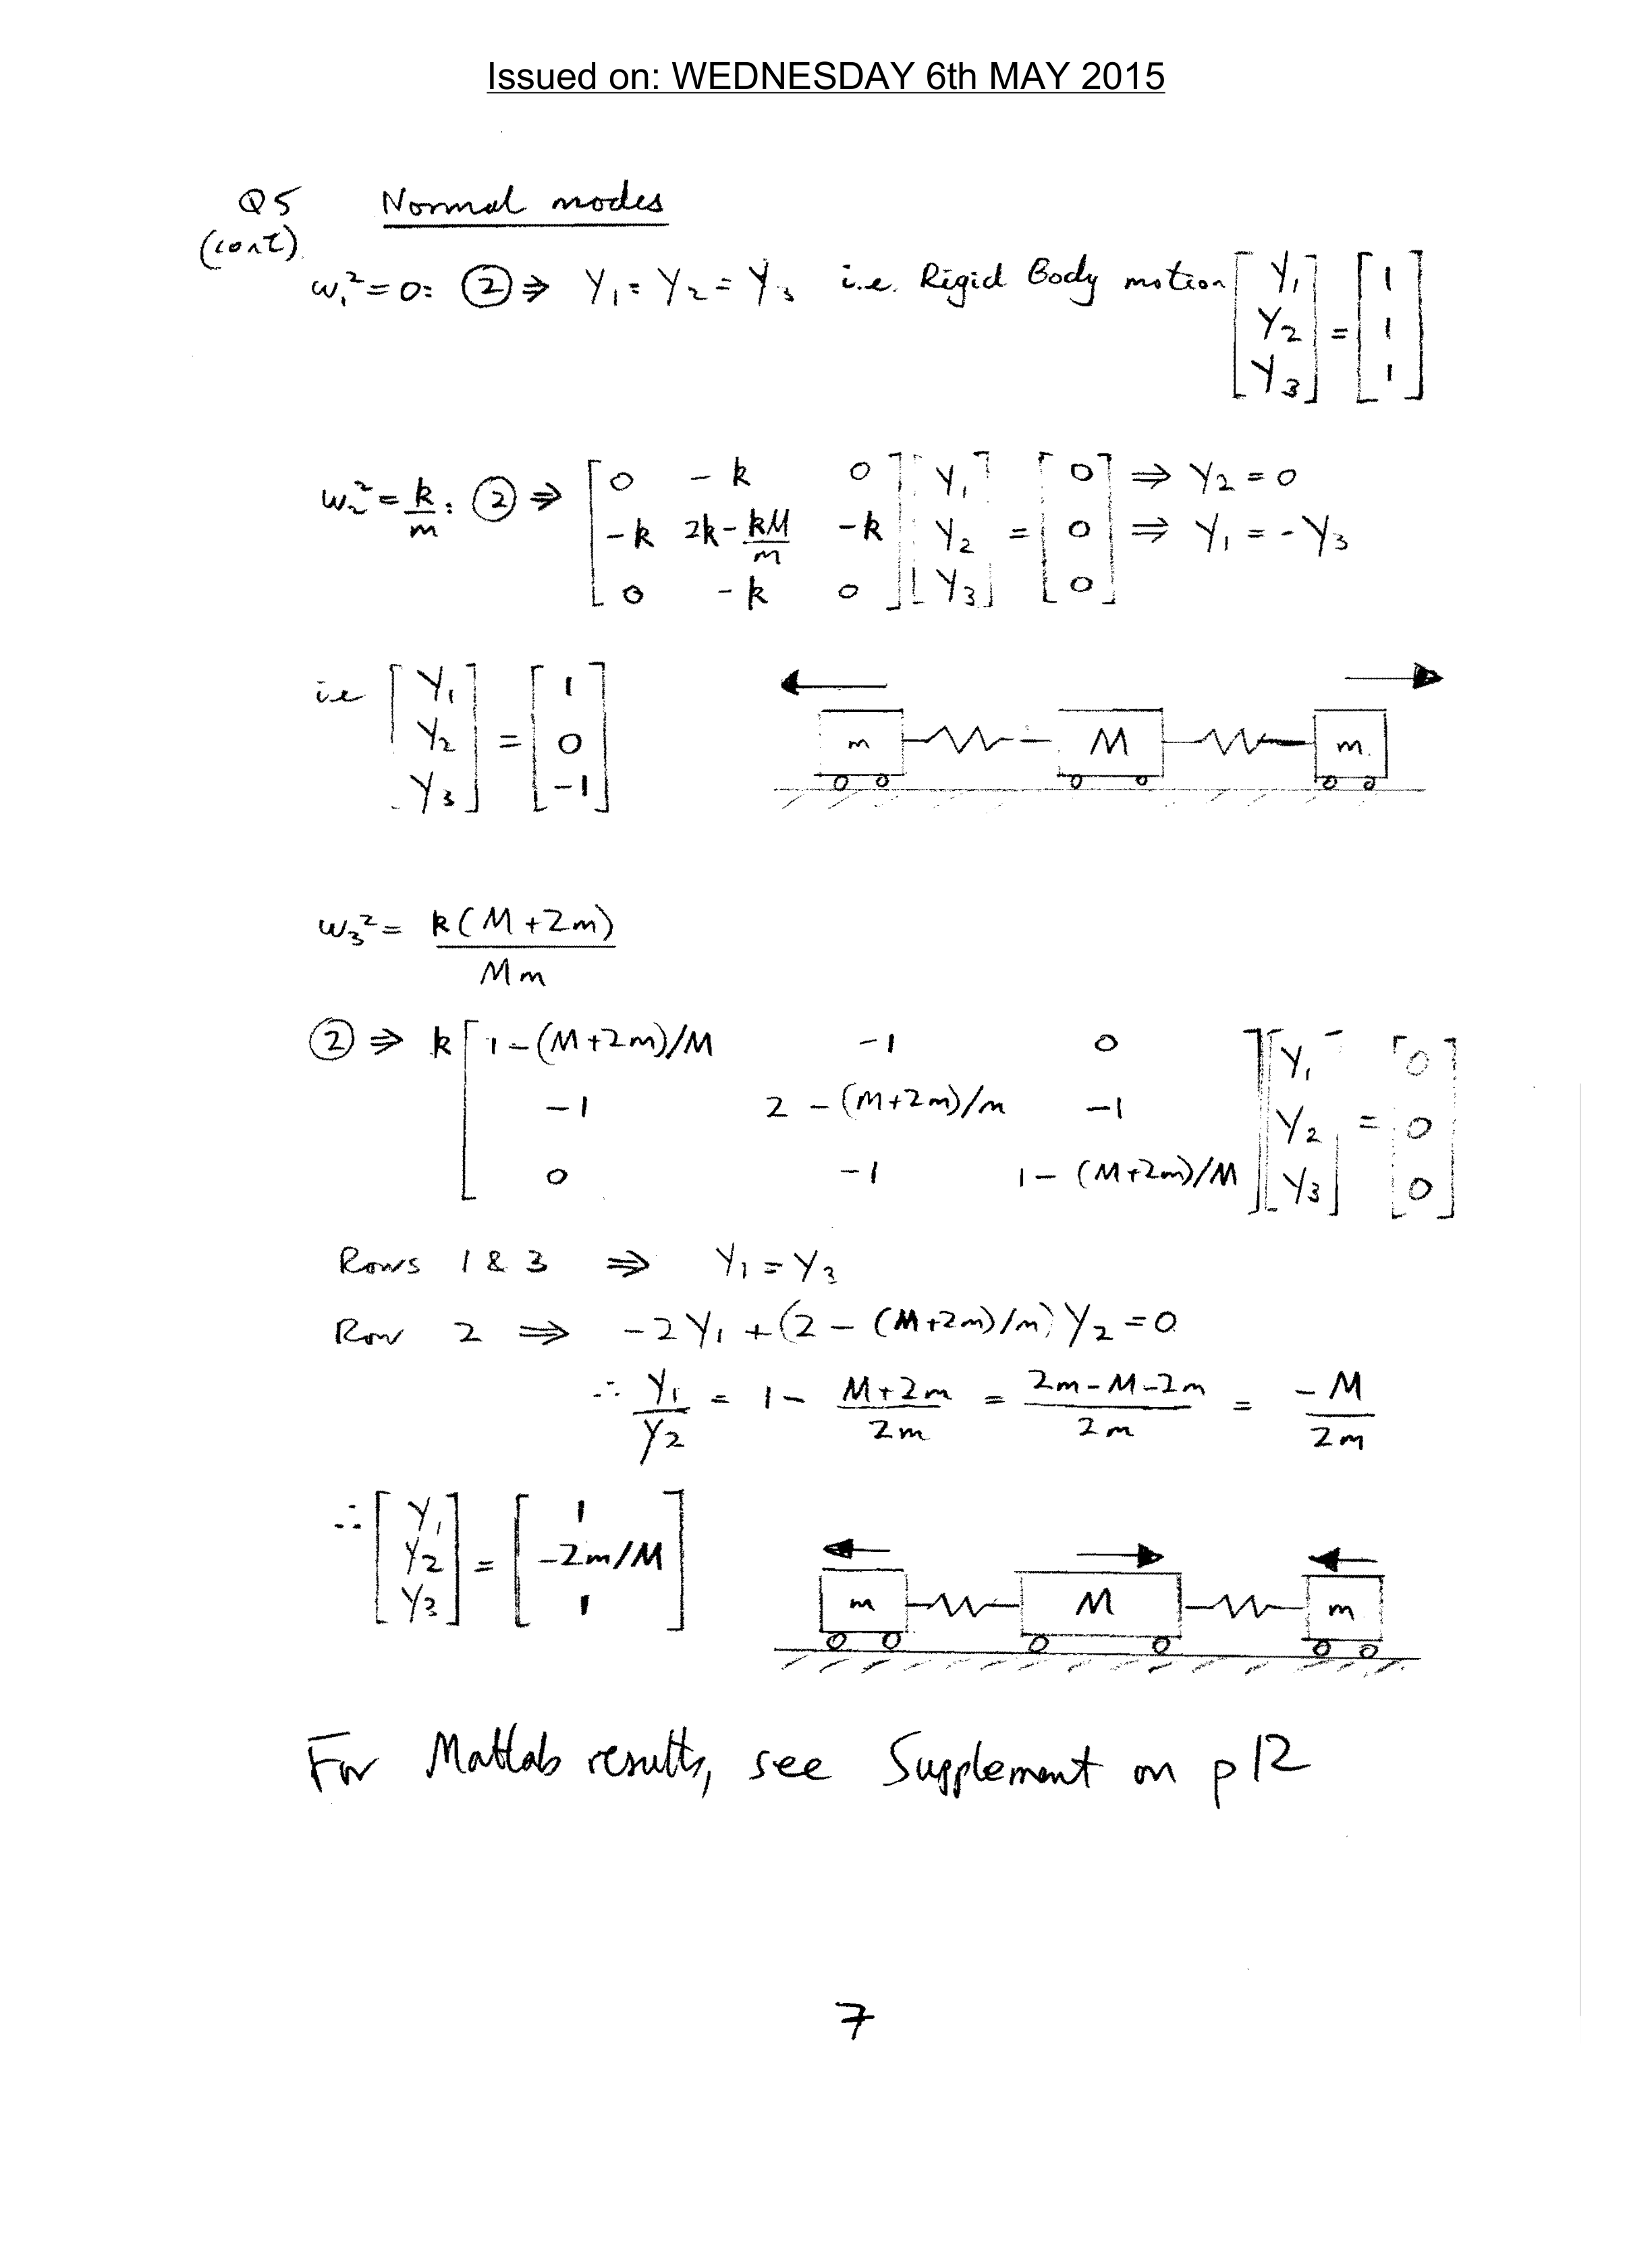 Issued on: WEDNESDAY 6th MAY 2015
Q5 Normal modes
(cont).
ω₁² = 0: ② ⇒ Y₁ = Y₂ = Y₃ i.e. Rigid Body motion [Y₁ Y₂ Y₃] = [1 1 1]
ω₂² = k/m: ② ⇒ [0 -k 0] [Y₁] = [0] ⇒ Y₂ = 0
[-k 2k-kM/m -k] [Y₂] = [0] ⇒ Y₁ = -Y₃
[0 -k 0] [Y₃] [0]
ie [Y₁ Y₂ Y₃] = [1 0 -1]
m M m
ω₃² = k(M+2m)/Mm
② ⇒ k [1-(M+2m)/M -1 0] [Y₁] [0]
[-1 2-(M+2m)/m -1] [Y₂] = [0]
[0 -1 1-(M+2m)/M] [Y₃] [0]
Rows 1 & 3 ⇒ Y₁ = Y₃
Row 2 ⇒ -2Y₁ + (2 - (M+2m)/m) Y₂ = 0
∴ Y₁/Y₂ = 1 - (M+2m)/2m = (2m-M-2m)/2m = -M/2m
∴ [Y₁ Y₂ Y₃] = [1 -2m/M 1]
m M m
For Matlab results, see Supplement on p12
7